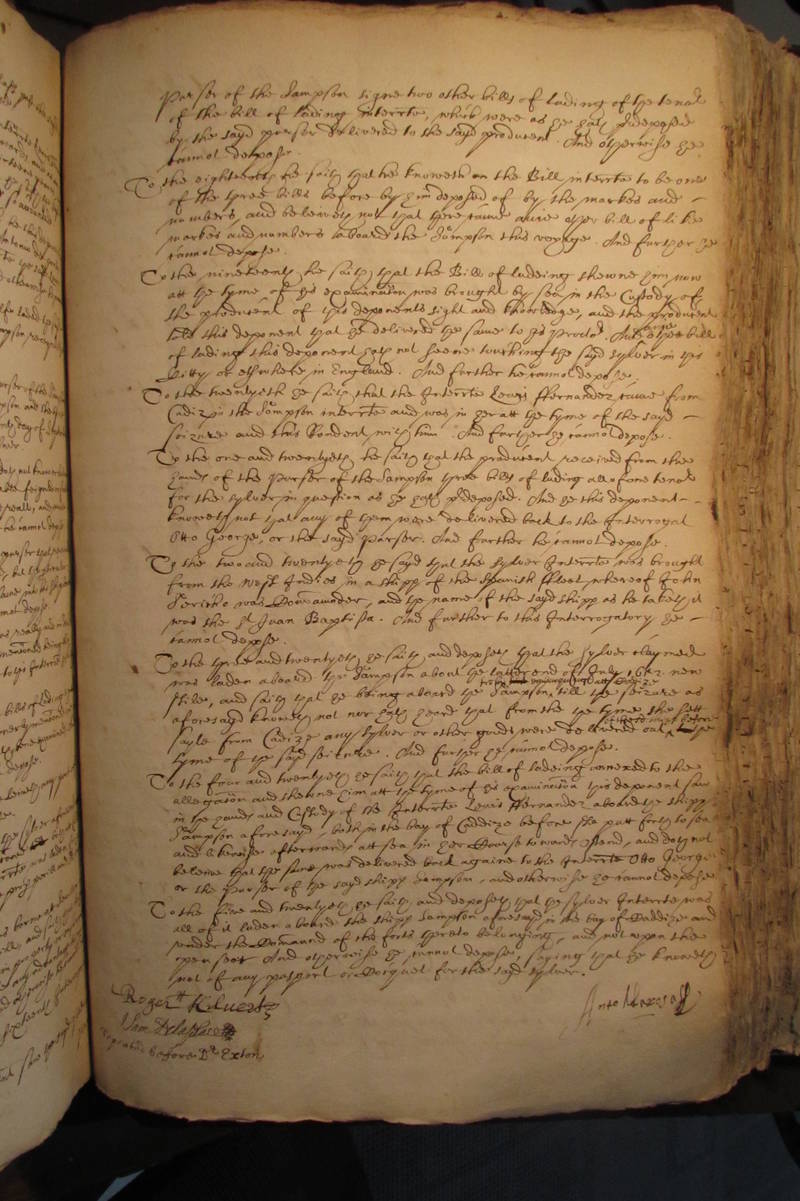 Purser of the Sampson signe two other bills of lading of the tenor
of the bill of lading interrte, which were as hee hath predeposed
by the sayd purser delivered to the sayd producent. And otherwise hee
cannot depose.
To the eighteenth he saith that hee knoweth on the Bill interrte to be one
of the three bills before by him deposed of by the markes and
numbers, and beleeveth not that there came anie other bill of like
markes and numbers aboard the Sampson this voyage. And further he
cannot depose.
To the nineteenth he saith that the Bill of ladeing shewne him now
att the tyme of his examination was brought by sea in the Custody of
the producent of this deponents sight and knowledge, and the producent
this deponent that he delivered the same to his Proctor. And other bill
of lading this deponent hath not seene touching the sayd sylver in this
Citty or elswhere in England. And further he cannot depose.
To the twentyeth he saith that the Interrte Lewis Hernandez came from
Cadiz in the Sampson interrte and was in her att the tyme of the sayd
seizure and this Rendent with him. And further he cannot depose.
To the one and twentyeth he saith that the producent received from the
hands of the Purser of the Sampson three bills of lading all of one tenor
for the sylver in question as he hath predeposed. And he this deponent
knoweth not that any of them were delivered back to the Interrogat
Otto George, or the sayd Purser. And further he cannot depose.
To the two and twentyeth he sayd that the sylver Interrte was brought
from the West Indies in a shipp of the Spanish ffleet whereof John
was Commander, and the name of the sayd shipp as he taketh it
was the St Juan Baptista. And further to this Interrogatory he
cannot depose.
To the three and twentyeth he saith and deposeth that the sylver claymed
was laden aboard the Sampson about the latter end of July 1652. new
stile, and saith that he being aboard the Sampson, till the seizure as
aforesayd knoweth not nor hath heard that from the tyme she sett
sayle from Cadize any sylver or other goods were delivered out before the
tyme of the sayd seizure. And further he cannot depose.
To the four and twentyeth he saith that the bill of ladeing annexed to the
allegation and shewne him att the tyme of his examination this deponent saw
in the hands and Custody of the Interrte Lewis Hernandez aboard the shipp
Sampson aforesayd, both in the bay of Caddize before she putt forth to sea
and likewise afterwards att sea in her Course towards Ostend, and doth not
beleive that the same was delivered back againe to the Interrte Otto George
or the purser of the sayd shipp Sampson, and otherwise he cannot depose
To the five and twentyeth he saith and deposeth that the sylver Interrte was
all of it laden aboard the shipp Sampson aforesayd in the bay of Caddize and
under the Command of the forts thereto belonging, and not upon the
open sea. And otherwise he cannot depose, saying that he knoweth
not of any pasport or Coquet for the sayd sylver.
Repeated before Dr Exton